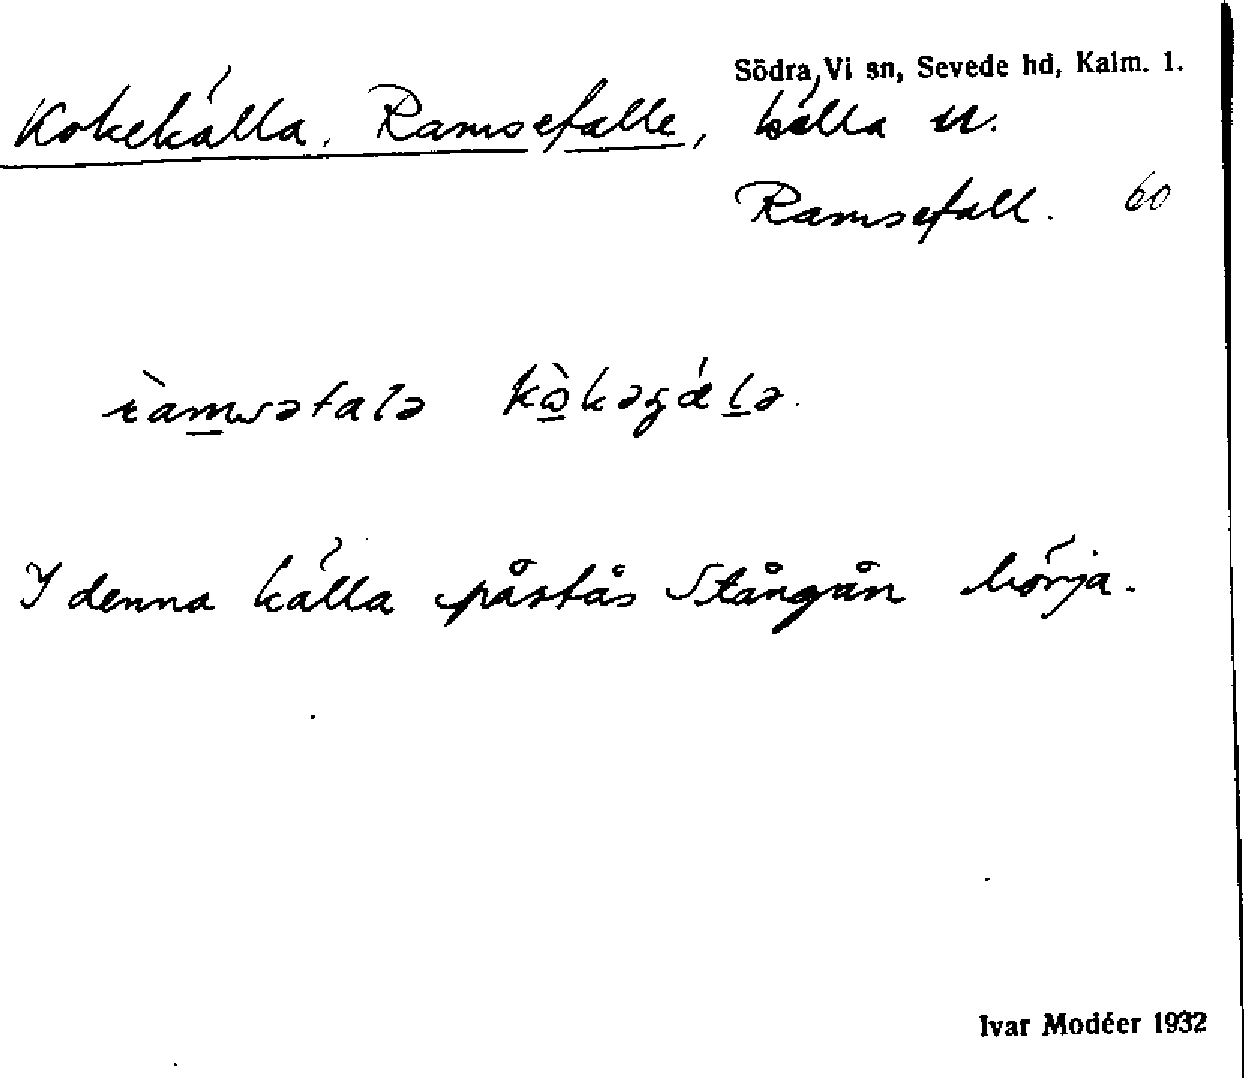 Södra Vi sn, Sevede hd, Kalm. l.
Kokekälla, Ramsefalle, källa N.
Ramsefall. 60
ràmsəfalə kòkəɕälə.
I denna källa påstås Stångån börja.
Ivar Modéer 1932